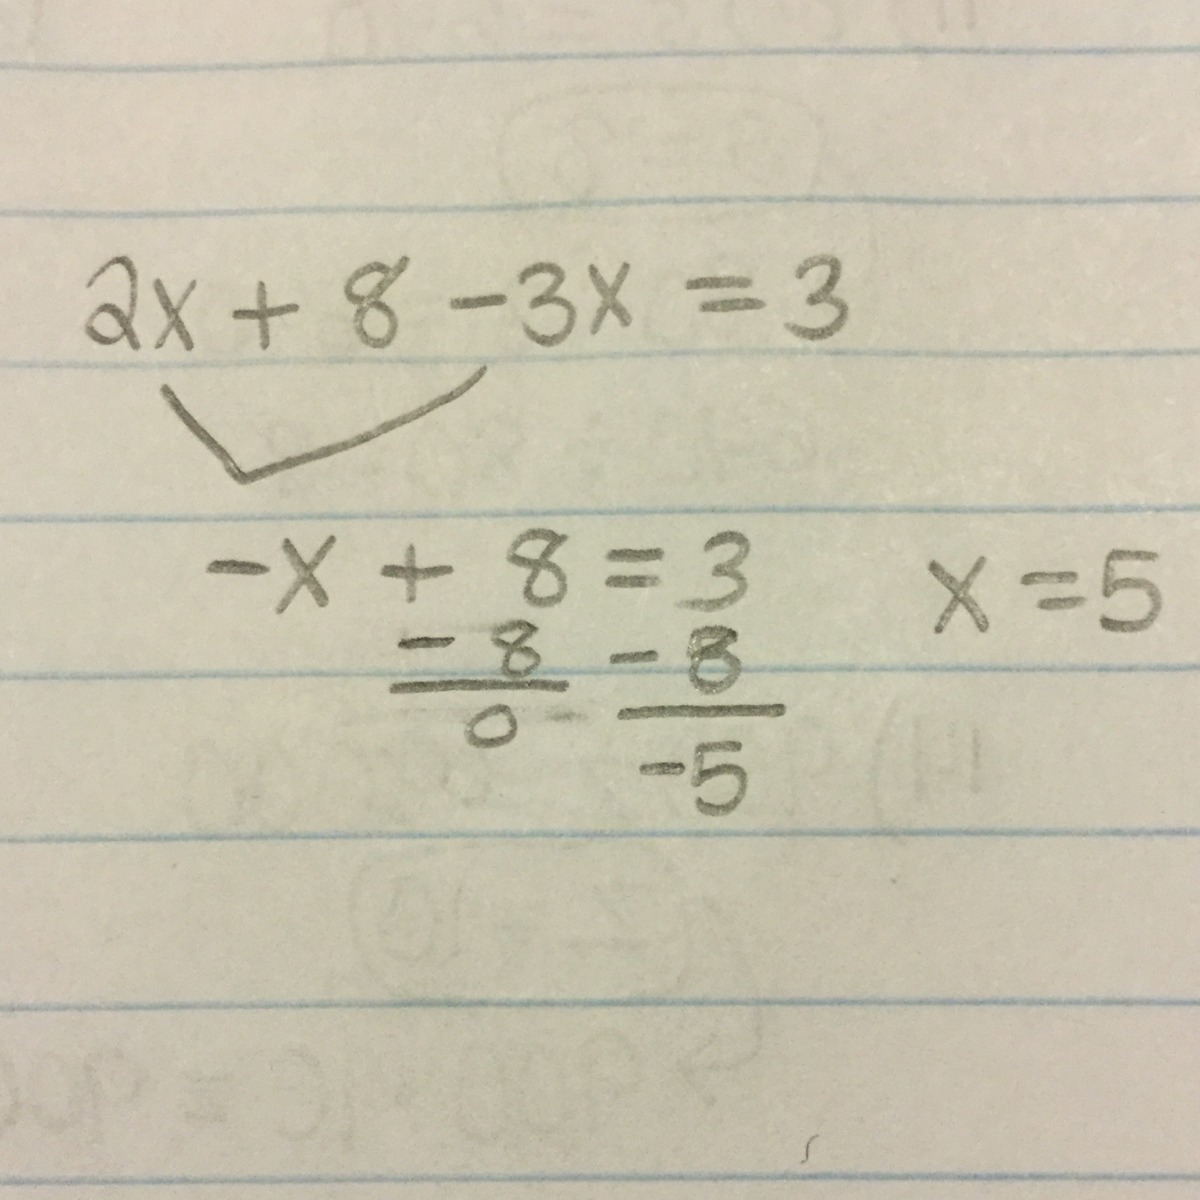 2x + 8 - 3x = 3
-x + 8 = 3 x = 5
- 8 - 8
0 -5